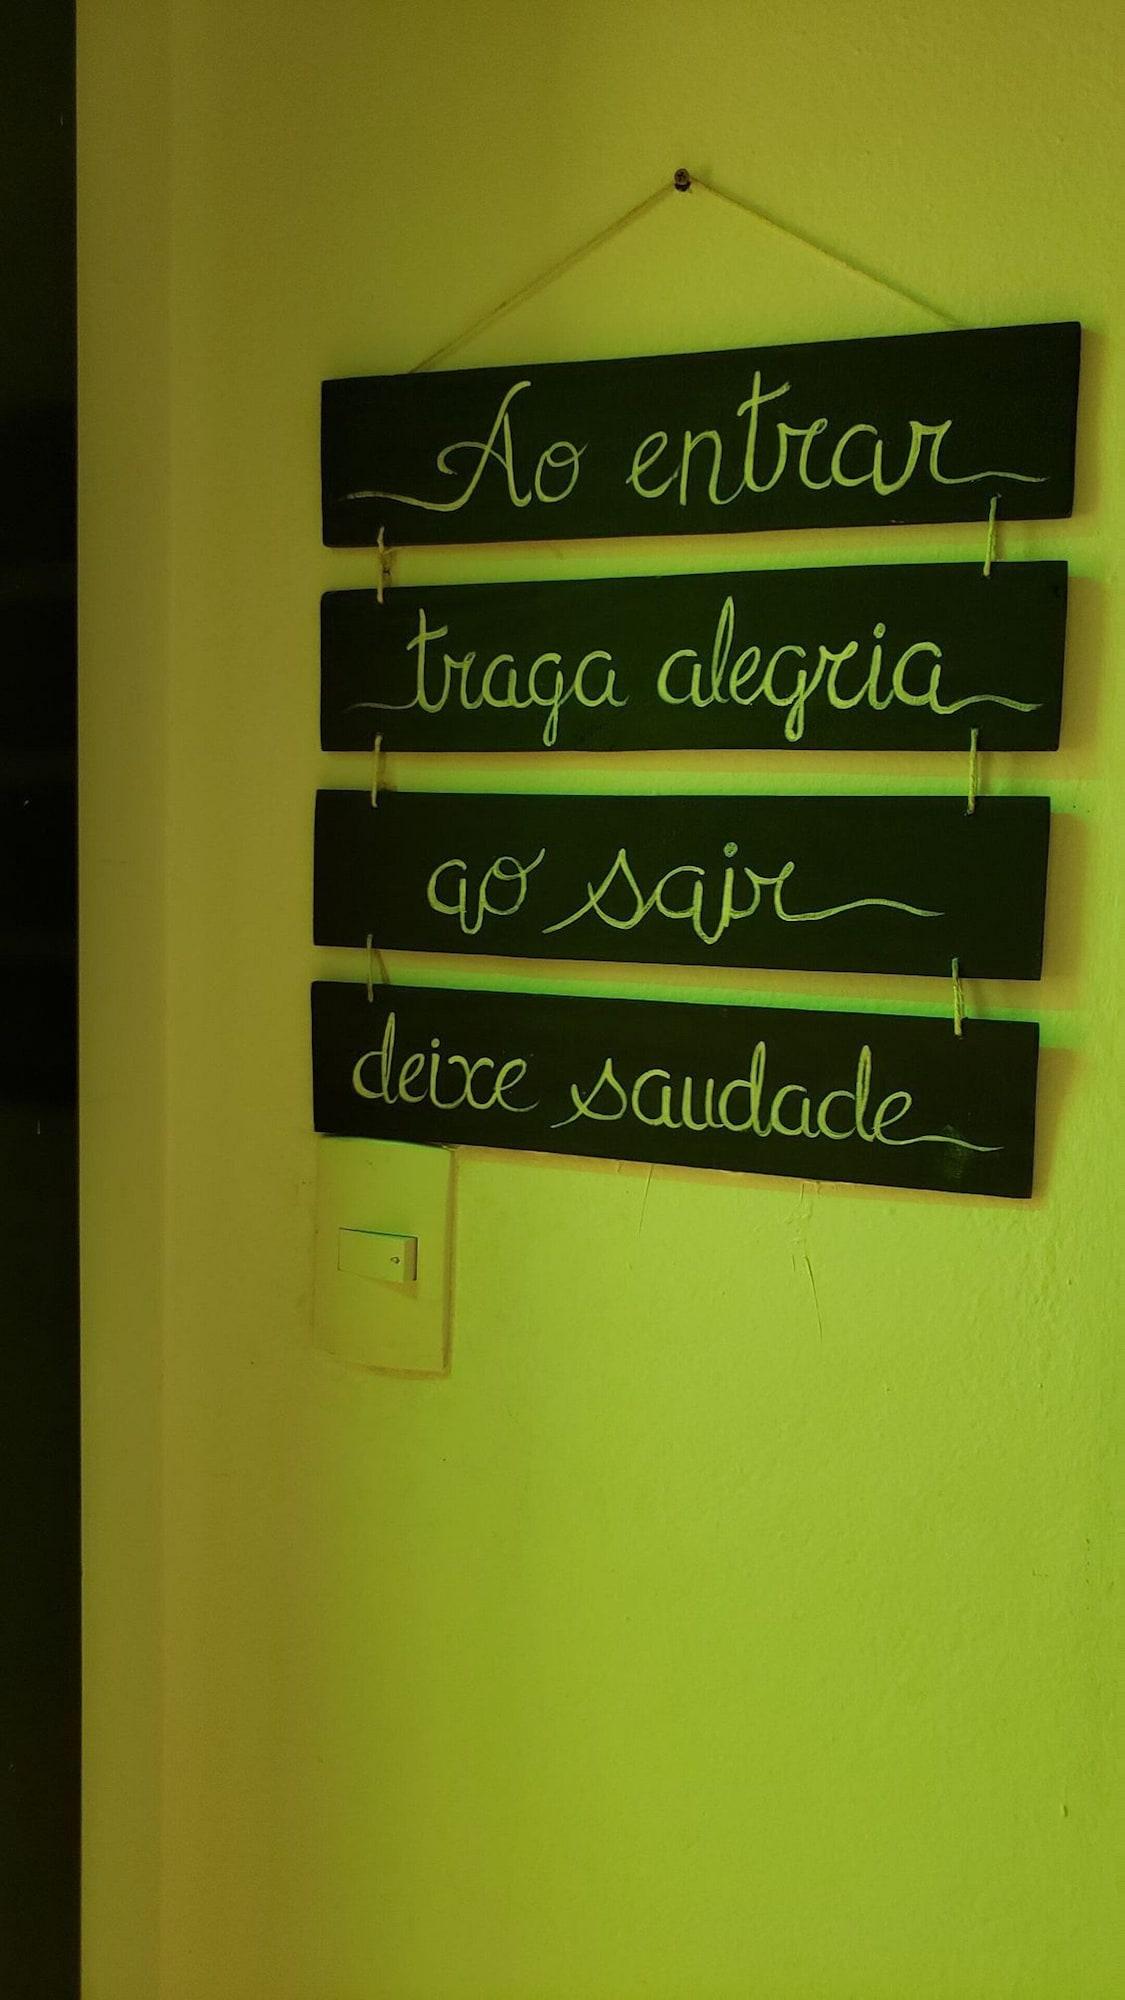 Ao entrar
traga alegria
ao sair
deixe saudade